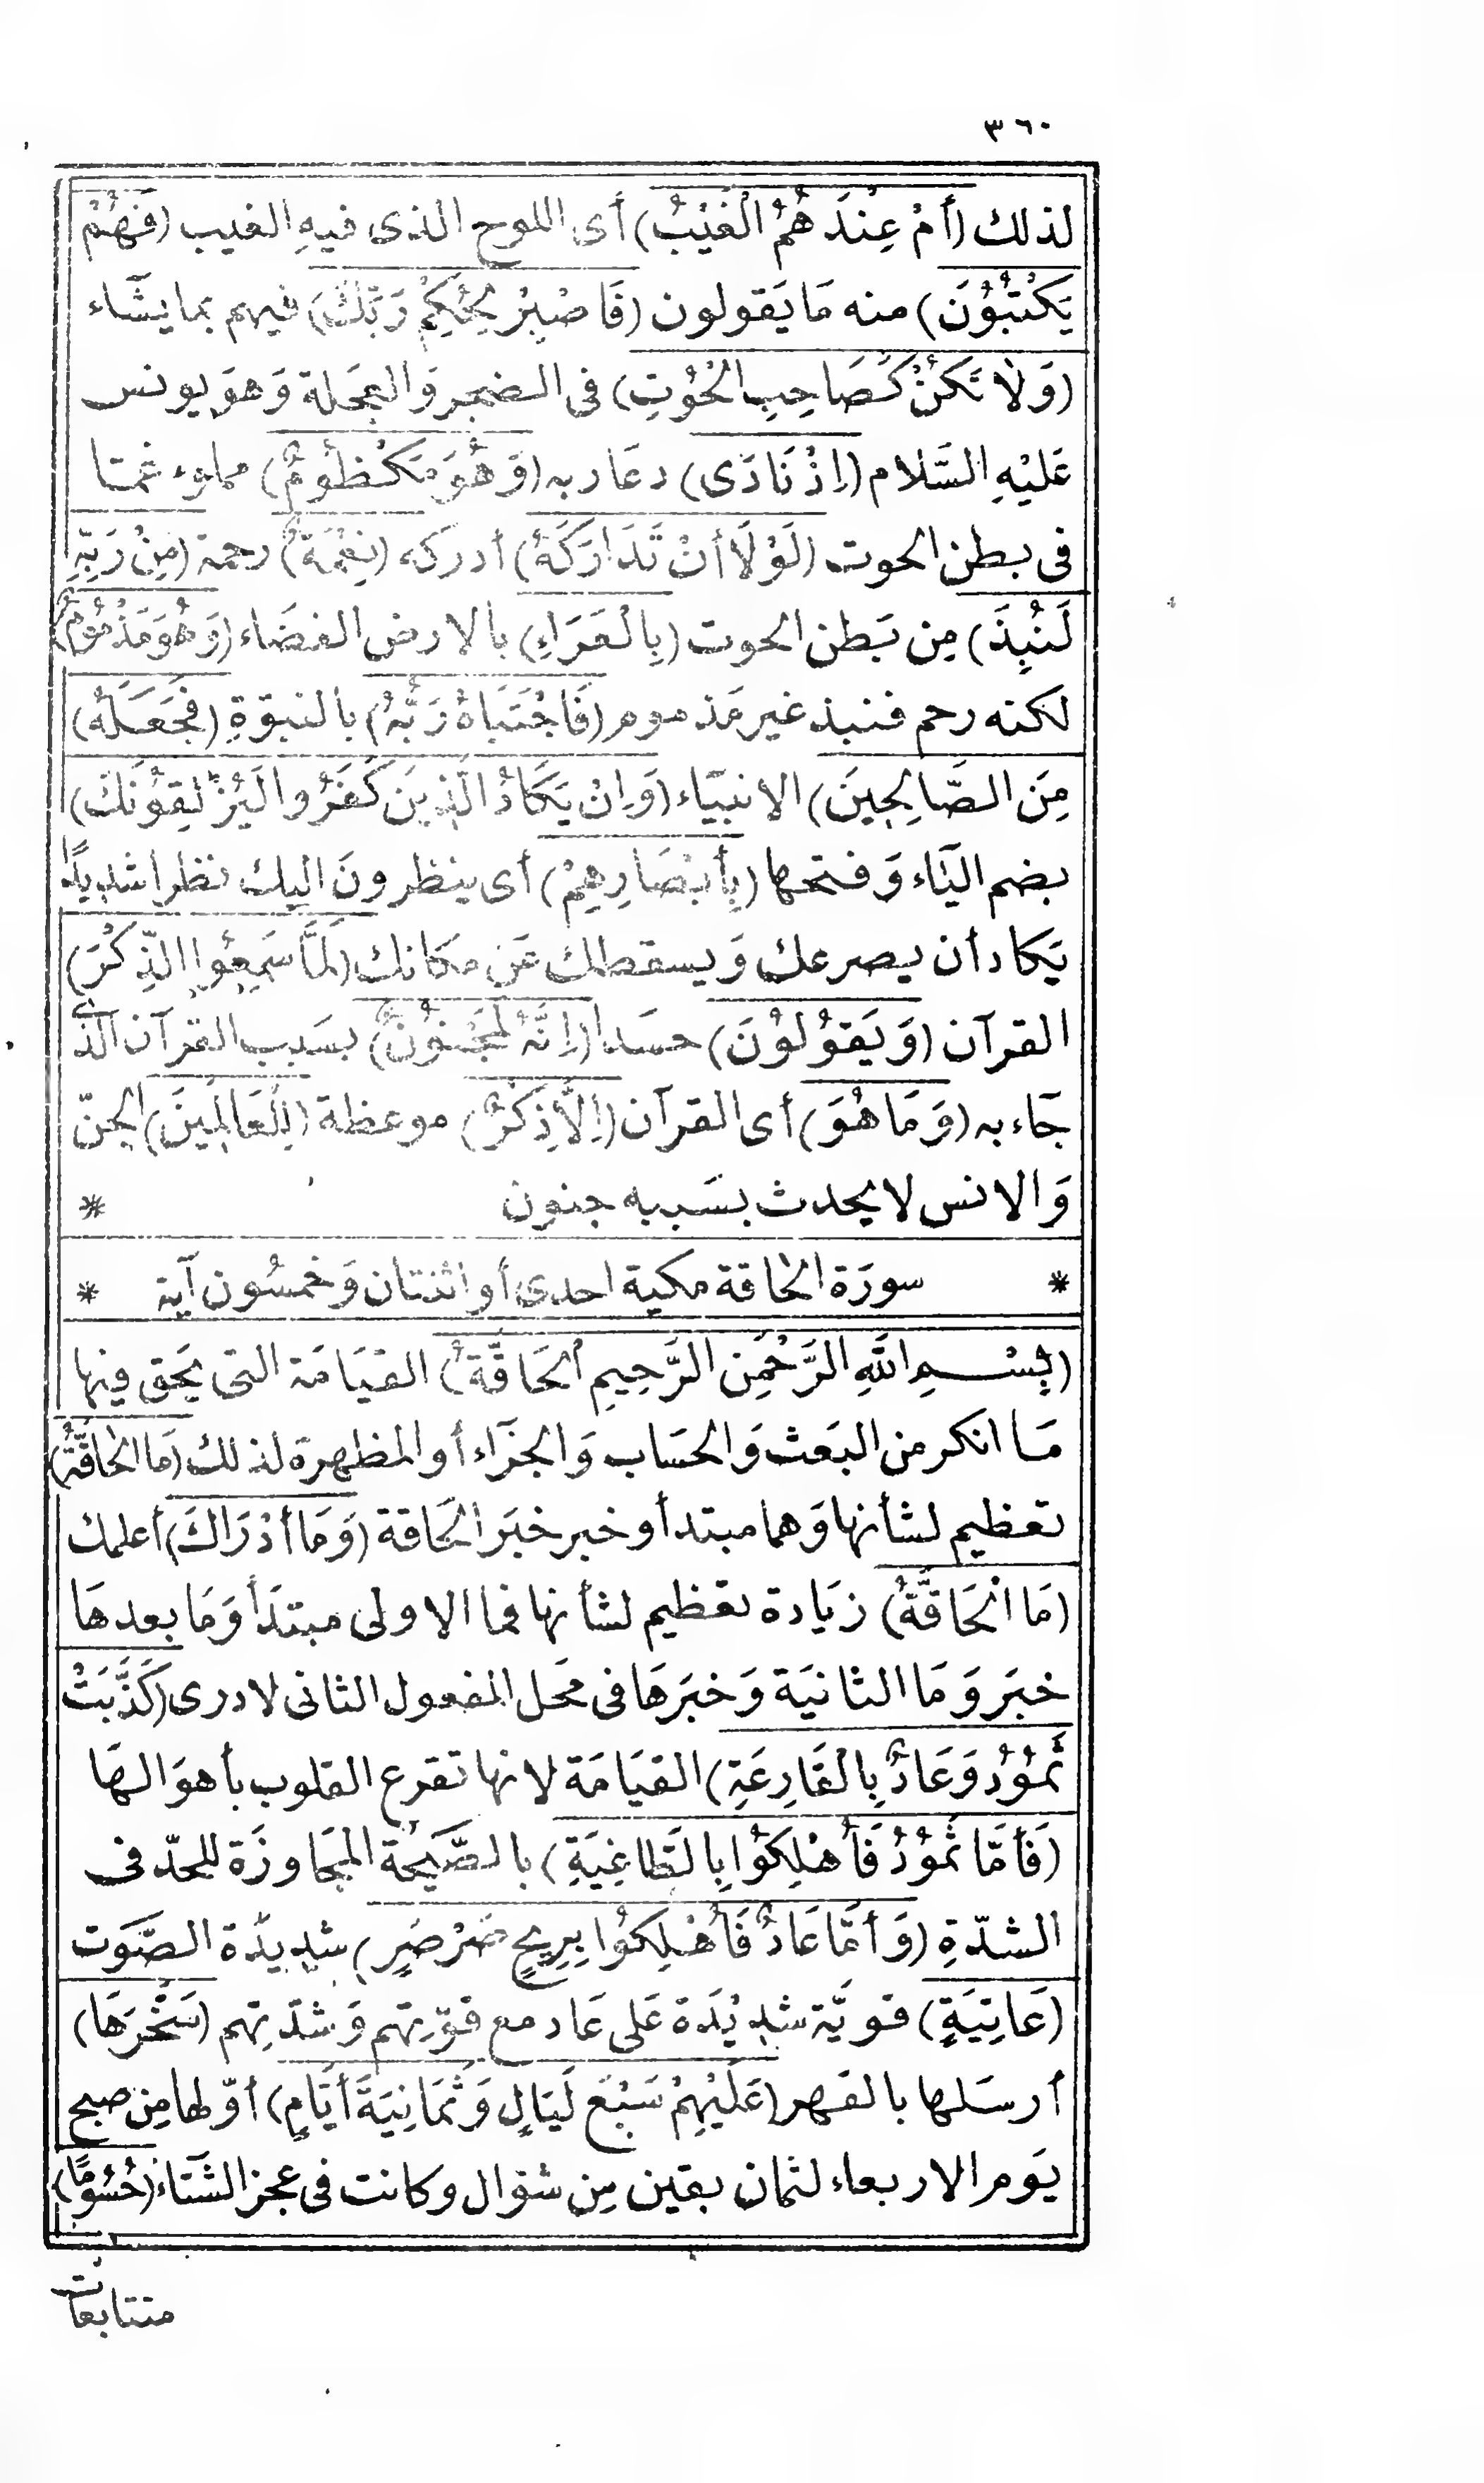 ٣٦٠
لذلك (أَمْ عِنْدَهُمُ الْغَيْبُ) أى اللوح الذى فيهِ الغيب (فَهُمْ
يَكْتُبُوْنَ) منه مَا يَقولون (فَاصْبِرْ لِحُكْمِ رَبِّكَ) فيهم بما يشَآء
(وَلَا تَكُنْ كَصَاحِبِ الْحُوْتِ) فى الضجر وَالعجَلة وَهوَ يونس
عَليْهِ السَّلام (اِذْ نَادَى) دعَا ربه (وَهُوَ مَكْظُومٌ) مملوء غمّا
فى بطن الحوت (لَوْلَا أَنْ تَدَارَكَهُ) أدركه (نِعْمَةٌ) رحمة (مِنْ رَبِّهِ
لَنُبِذَ) مِن بَطن الحوت (بِالْعَرَاءِ) بالارض الفضَاء (وَهُوَ مَذْمُوْمٌ)
لكنه رحم فنبذ غير مَذموم (فَاجْتَبَاهُ رَبُّهُ) بالنبوّةِ (فَجَعَلَهُ)
مِنَ الصَّالِحِينَ) الانبيَاء (وَاِنْ يَكَادُ الَّذِينَ كَفَرُوا لَيُزْلِقُوْنَكَ)
بضم اليَاء وَفتحها (بِأَبْصَارِهِمْ) أى ينظرونَ اليك نظرا شدِيدًا
يَكاد أن يصرعك وَيسقطك عَن مكَانك (لَمَّا سَمِعُوا الذِّكْرَ)
القرآن (وَيَقُوْلُوْنَ) حسَدا (اِنَّهُ لَمَجْنُوْنٌ) بسَبب القرآن الذى
جَاء به (وَمَا هُوَ) أى القرآن (اِلَّا ذِكْرٌ) موعظة (لِلْعَالَمِيْنَ) الجنّ
وَالانس لا يحدث بسَببه جنون *
* سورَة الحاقة مكية احدى أو اثنتان وَخمسُون آية *
(بِسْمِ اللّٰهِ الرَّحْمٰنِ الرَّحِيمِ اَلْحَاقَّةُ) القيَامَة التى يَحق فِيها
مَا انكر من البَعث وَالحسَاب وَالجزَاء أو المظهرة لذلك (مَا الْحَاقَّةُ)
تعظيم لشأنها وَهما مبتدأ وخبر خبَر الحَاقة (وَمَا أَدْرَاكَ) أعلمك
(مَا الْحَاقَّةُ) زيَادة تعظيم لشأنها فما الاولى مبتدَأ وَمَا بعدهَا
خبَر وَمَا الثانيَة وَخبَرهَا فى مَحَل المفعول الثانى لادرى (كَذَّبَتْ
ثَمُوْدُ وَعَادٌ بِالْقَارِعَةِ) القيَامَة لانها تقرع القلوب بأهوَالهَا
(فَأَمَّا ثَمُوْدُ فَأُهْلِكُوْا بِالطَّاغِيَةِ) بالصَّيْحَة المجَاوزَة للحدّ فى
الشدّةِ (وَأَمَّا عَادٌ فَأُهْلِكُوْا بِرِيْحٍ صَرْصَرٍ) شدِيدَة الصَّوت
(عَاتِيَةٍ) قويَّة شدِيْدَة عَلى عَاد مع قوّتِهم وَشدّتِهم (سَخَّرَهَا)
أرسَلها بالقهر (عَلَيْهِمْ سَبْعَ لَيَالٍ وَثَمَانِيَةَ أَيَّامٍ) أوّلها مِن صبح
يَوم الاربعاء لثمان بقين مِن شوّال وكانت فى عجز الشتاء (حُسُوْمًا)
متتابعات